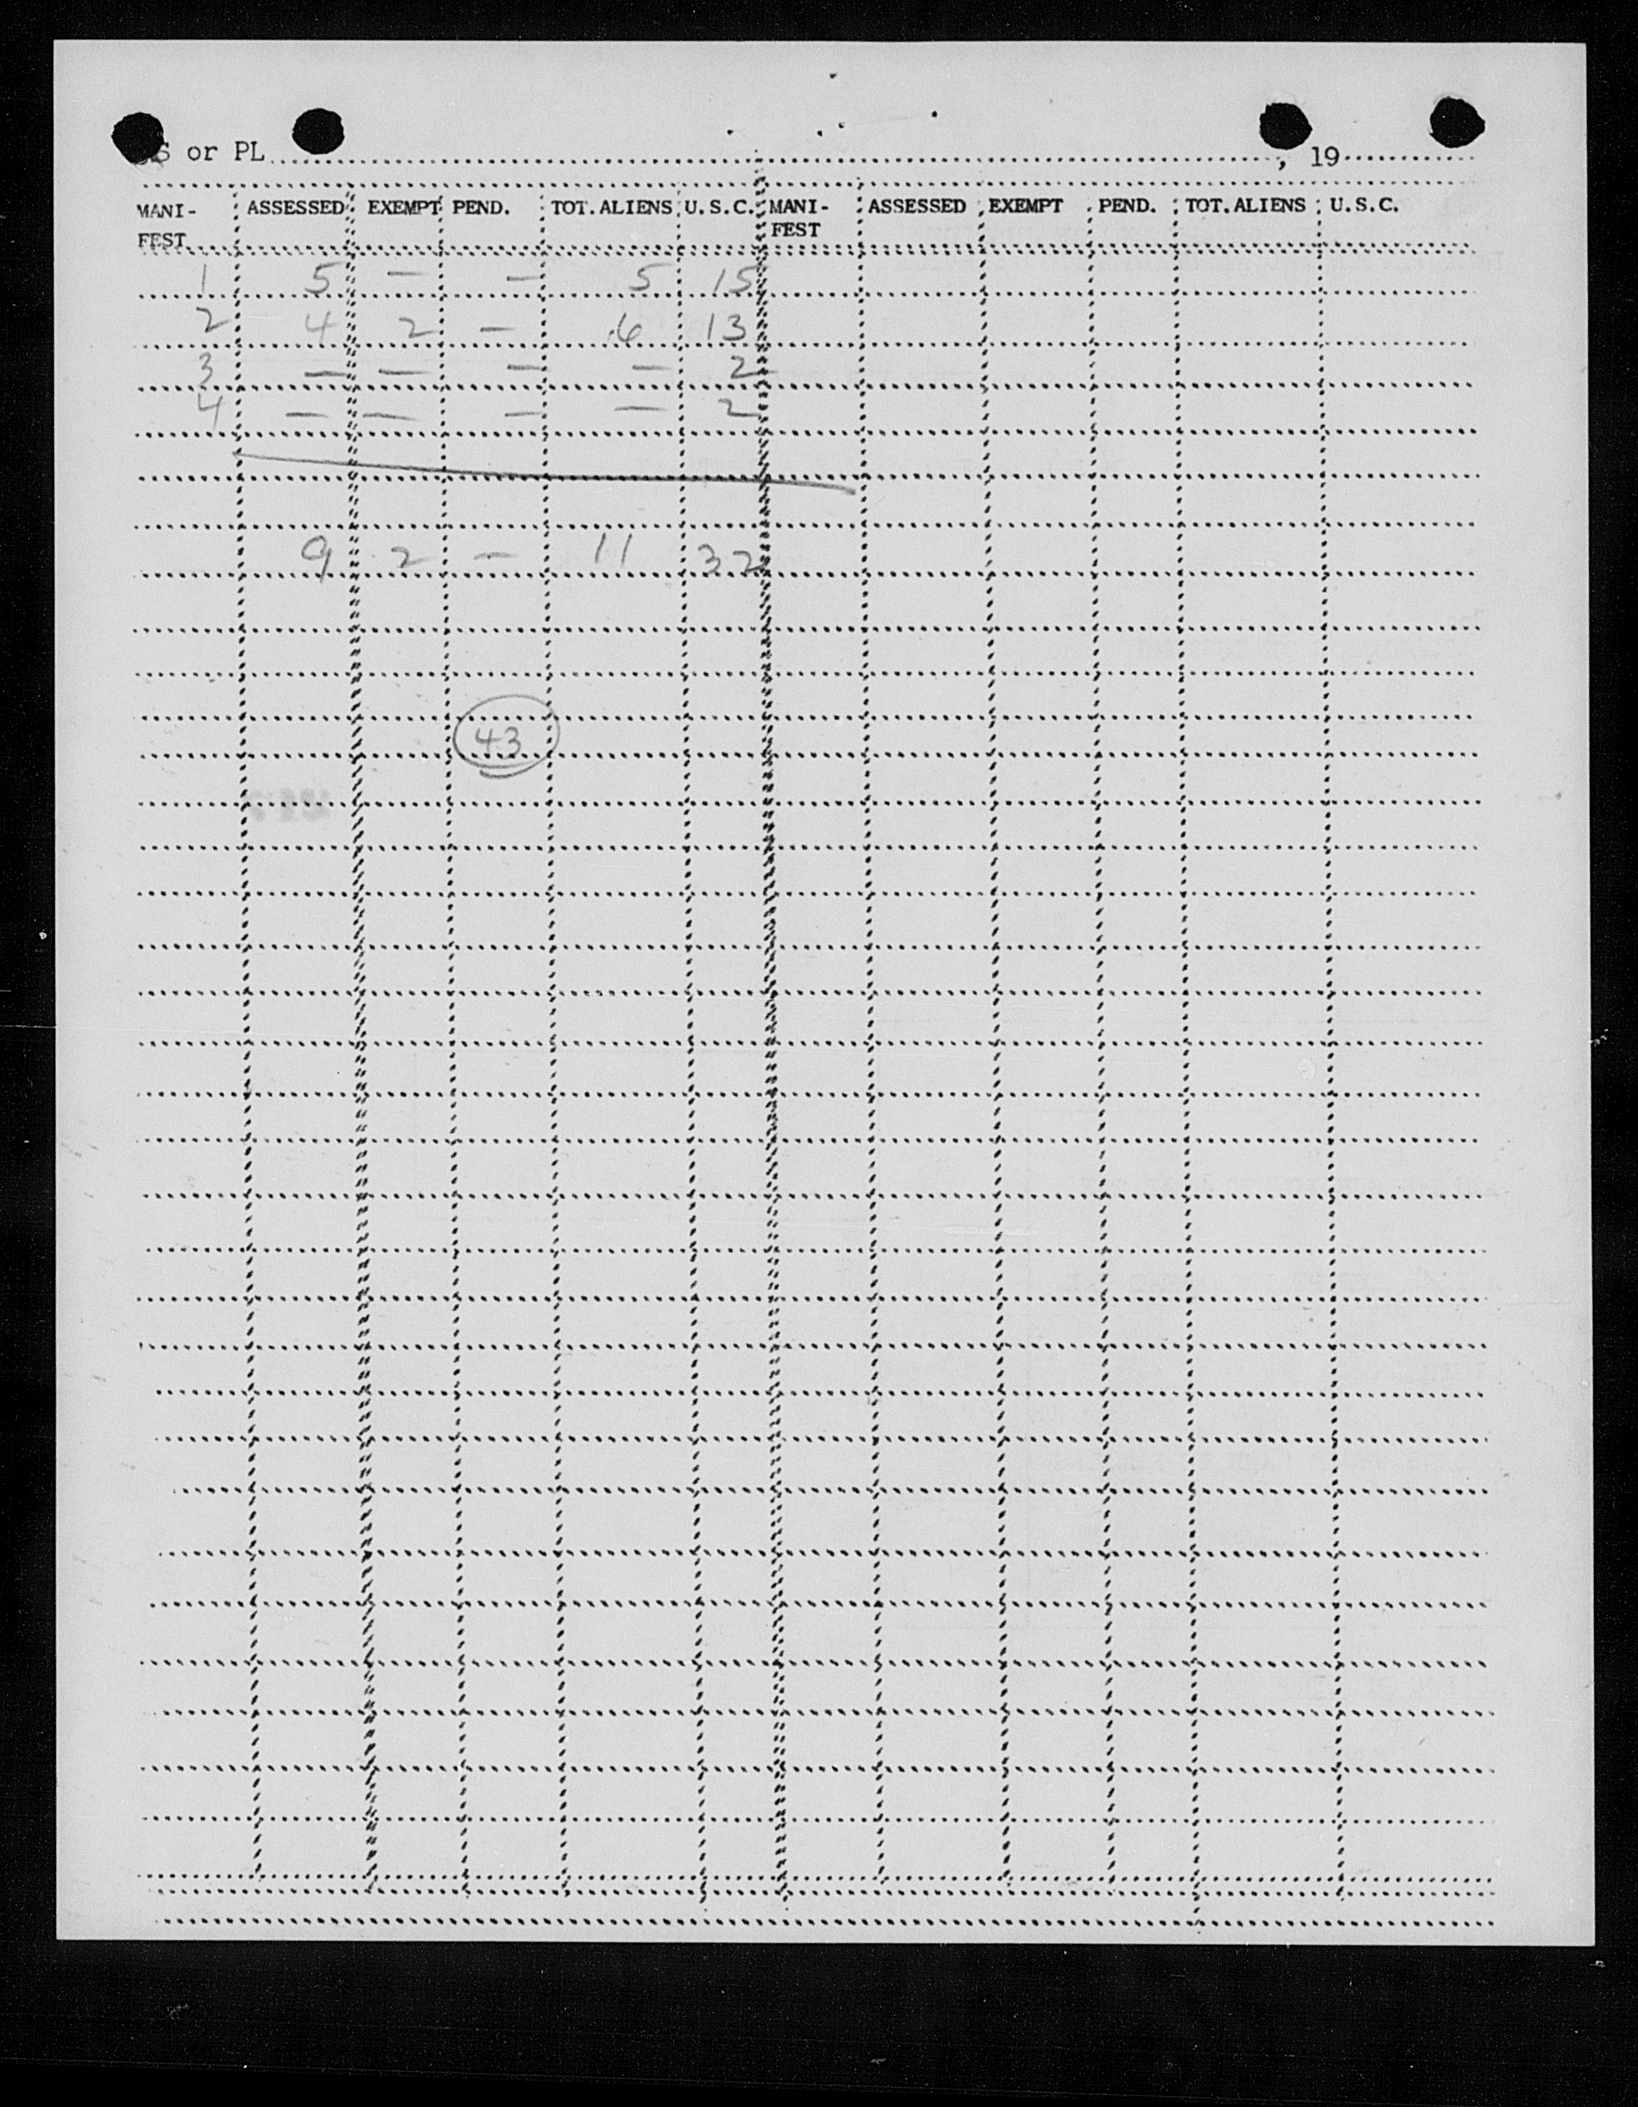 SS or PL , 19
MANI- ASSESSED EXEMPT PEND. TOT. ALIENS U.S.C. MANI- ASSESSED EXEMPT PEND. TOT. ALIENS U.S.C.
FEST FEST
1 5 — — 5 15
2 4 2 — 6 13
3 — — — — 2
4 — — — — 2
9 2 — 11 32
43